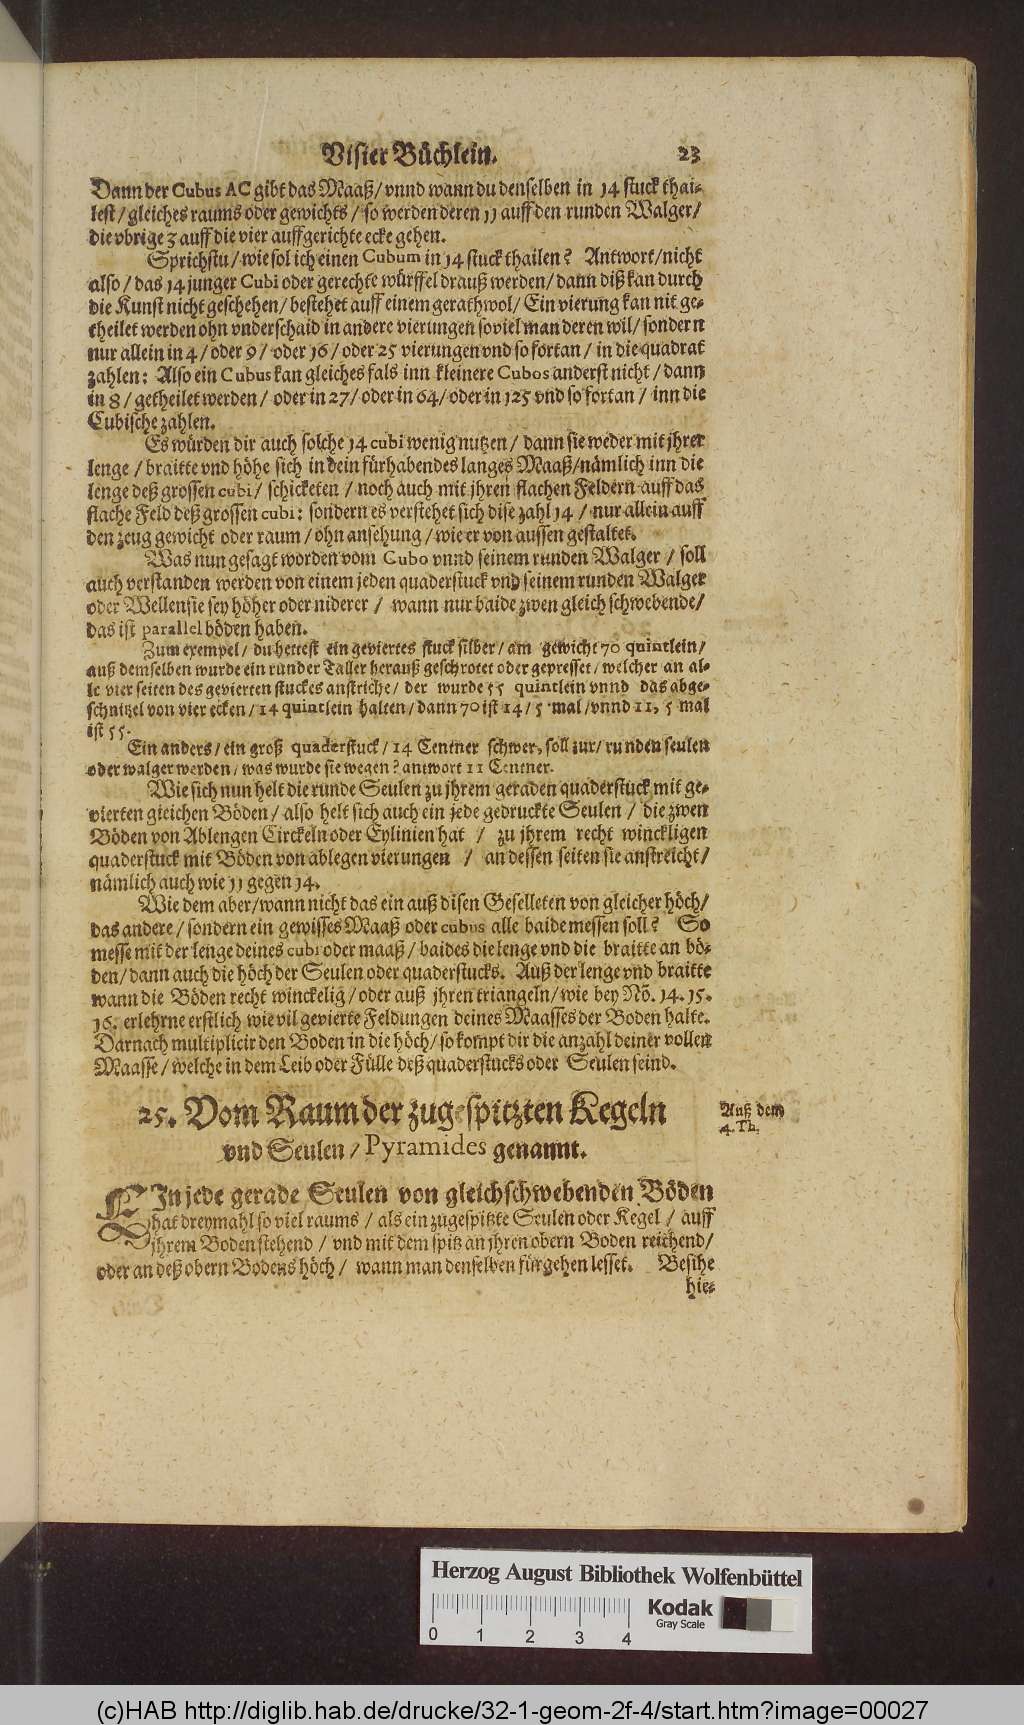 Visier Büchlein. 23
Dann der Cubus AC gibt das Maaß/ vnnd wann du denselben in 14 stuck thai-
lest/ gleiches raums oder gewichts/ so werden deren 11 auff den runden Walger/
die vbrige 3 auff die vier auffgerichte ecke gehen.
Sprichstu/ wie sol ich einen Cubum in 14 stuck thailen? Antwort/ nicht
also/ das 14 junger Cubi oder gerechte würffel drauß werden/ dann diß kan durch
die Kunst nicht geschehen/ bestehet auff einem gerathwol/ Ein vierung kan nit ge-
theilet werden ohn vnderschaid in andere vierungen soviel man deren wil/ sondern
nur allein in 4/ oder 9/ oder 16/ oder 25 vierungen vnd so fortan/ in die quadrat
zahlen: Also ein Cubus kan gleiches fals inn kleinere Cubos anderst nicht/ dann
in 8/ getheilet werden/ oder in 27/ oder in 64/ oder in 125 vnd so fortan/ inn die
Cubische zahlen.
Es würden dir auch solche 14 cubi wenig nutzen/ dann sie weder mit jhrer
lenge/ braitte vnd höhe sich in dein fürhabendes langes Maaß/ nämlich inn die
lenge deß grossen cubi/ schicketen/ noch auch mit jhren flachen Feldern auff das
flache Feld deß grossen cubi: sondern es verstehet sich dise zahl 14/ nur allein auff
den zeug gewicht oder raum/ ohn ansehung/ wie er von aussen gestaltet.
Was nun gesagt worden vom Cubo vnnd seinem runden Walger/ soll
auch verstanden werden von einem jeden quaderstuck vnd seinem runden Walger
oder Wellen sie sey höher oder niderer/ wann nur baide zwen gleich schwebende/
das ist parallel böden haben.
Zum exempel/ du hettest ein geviertes stuck silber/ am gewicht 70 quintlein/
auß demselben wurde ein runder Taller herauß geschrotet oder gepresset/ welcher an al-
le vier seiten des gevierten stuckes anstriche/ der wurde 55 quintlein vnnd das abge-
schnitzel von vier ecken/ 14 quintlein halten/ dann 70 ist 14/ 5 mal/ vnnd 11, 5 mal
ist 55.
Ein anders/ ein groß quaderstuck/ 14 Centner schwer, soll zur/ runden seulen
oder walger werden, was wurde sie wegen? antwort 11 Centner.
Wie sich nun helt die runde Seulen zu jhrem geraden quaderstuck mit ge-
vierten gleichen Böden/ also helt sich auch ein jede gedruckte Seulen/ die zwen
Böden von Ablengen Circkeln oder Eylinien hat/ zu jhrem recht winckligen
quaderstuck mit Böden von ablegen vierungen/ an dessen seiten sie anstreicht/
nämlich auch wie 11 gegen 14.
Wie dem aber/ wann nicht das ein auß disen Geselleten von gleicher höch/
das andere/ sondern ein gewisses Maaß oder cubus alle baide messen soll? So
messe mit der lenge deines cubi oder maaß/ baides die lenge vnd die braitte an bö-
den/ dann auch die höch der Seulen oder quaderstucks. Auß der lenge vnd braitte
wann die Böden recht winckelig/ oder auß jhren triangeln/ wie bey No. 14. 15.
16. erlehrne erstlich wie vil gevierte Feldungen deines Maasses der Boden halte.
Darnach multiplicir den Boden in die höch/ so kompt dir die anzahl deiner vollen
Maasse/ welche in dem Leib oder Fülle deß quaderstucks oder Seulen seind.
25. Vom Raum der zugespitzten Kegeln
vnd Seulen/ Pyramides genannt.
Auß dem
4. Th.
EIn jede gerade Seulen von gleichschwebenden Böden
hat dreymahl so viel raums/ als ein zugespitzte Seulen oder Kegel/ auff
jhrem Boden stehend/ vnd mit dem spitz an jhren obern Boden reichend/
oder an deß obern Bodens höch/ wann man denselben fürgehen lesset. Besihe
hie-
Herzog August Bibliothek Wolfenbüttel
0 1 2 3 4
Kodak
Gray Scale
(c)HAB http://diglib.hab.de/drucke/32-1-geom-2f-4/start.htm?image=00027